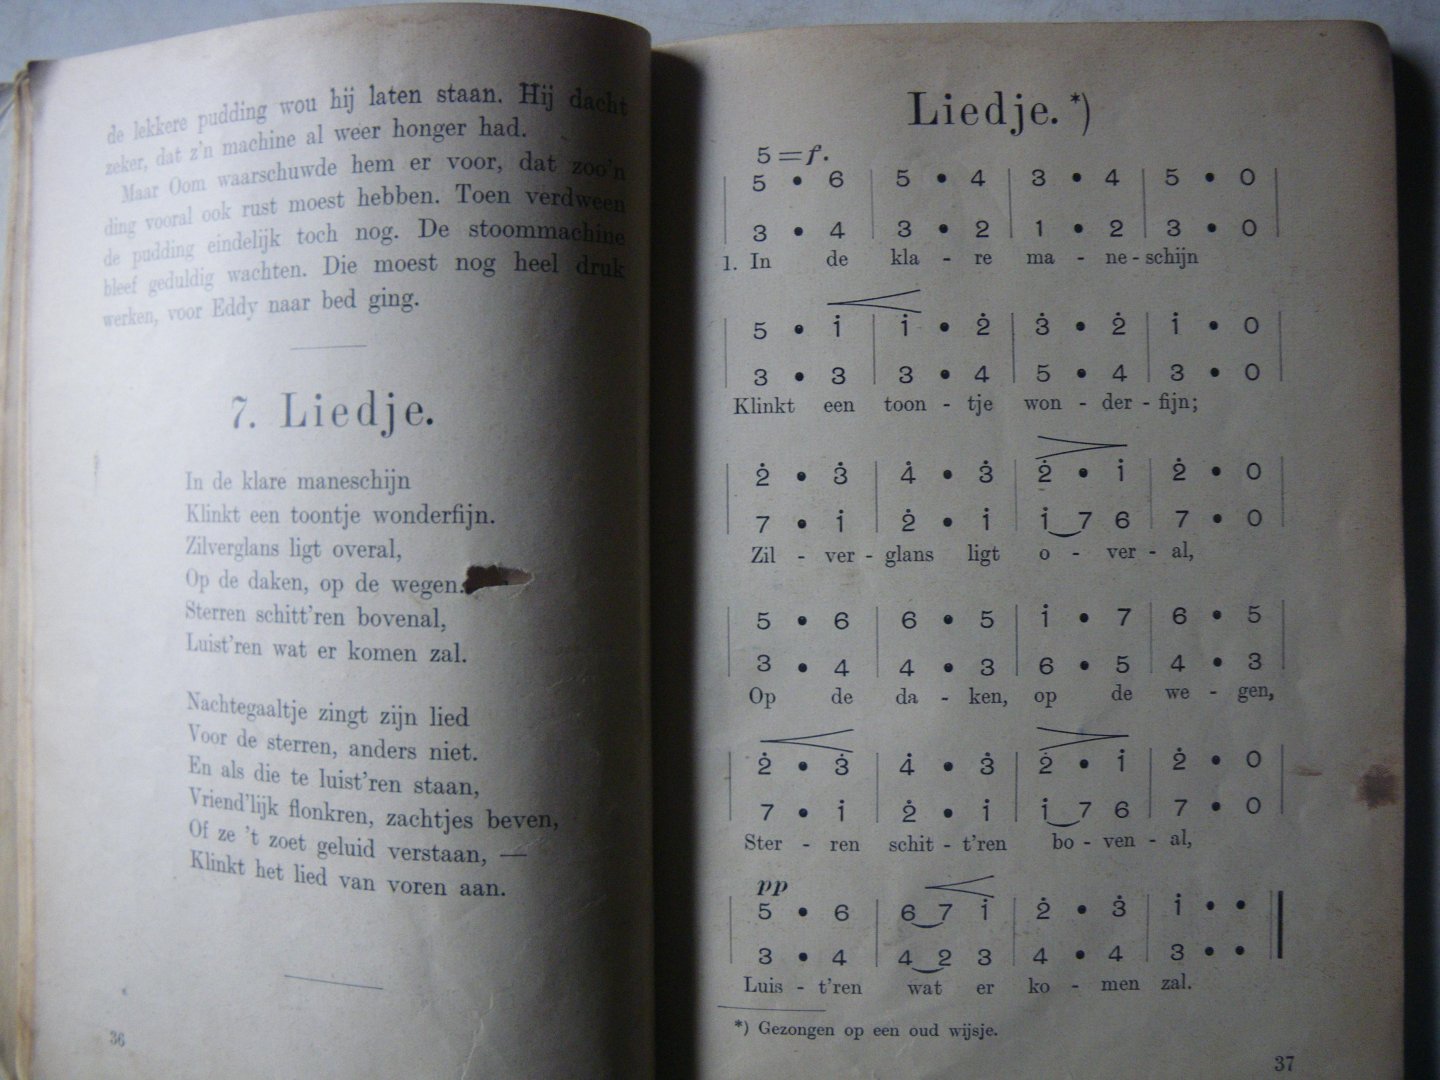 de lekkere pudding wou hij laten staan. Hij dacht
zeker, dat z'n machine al weer honger had.
Maar Oom waarschuwde hem er voor, dat zoo'n
ding vooral ook rust moest hebben. Toen verdween
de pudding eindelijk toch nog. De stoommachine
bleef geduldig wachten. Die moest nog heel druk
werken, voor Eddy naar bed ging.
7. Liedje.
In de klare maneschijn
Klinkt een toontje wonderfijn.
Zilverglans ligt overal,
Op de daken, op de wegen.
Sterren schitt'ren bovenal,
Luist'ren wat er komen zal.
Nachtegaaltje zingt zijn lied
Voor de sterren, anders niet.
En als die te luist'ren staan,
Vriend'lijk flonkren, zachtjes beven,
Of ze 't zoet geluid verstaan, —
Klinkt het lied van voren aan.
36
Liedje. *)
5 = f.
5 • 6 | 5 • 4 | 3 • 4 | 5 • 0
3 • 4 | 3 • 2 | 1 • 2 | 3 • 0
1. In de kla - re ma - ne - schijn
5 • i | i • 2̇ | 3̇ • 2̇ | i • 0
3 • 3 | 3 • 4 | 5 • 4 | 3 • 0
Klinkt een toon - tje won - der - fijn;
2̇ • 3̇ | 4̇ • 3̇ | 2̇ • i | 2̇ • 0
7 • i | 2̇ • i | i 7 6 | 7 • 0
Zil - ver - glans ligt o - ver - al,
5 • 6 | 6 • 5 | i • 7 | 6 • 5
3 • 4 | 4 • 3 | 6 • 5 | 4 • 3
Op de da - ken, op de we - gen,
2̇ • 3̇ | 4̇ • 3̇ | 2̇ • i | 2̇ • 0
7 • i | 2̇ • i | i 7 6 | 7 • 0
Ster - ren schit - t'ren bo - ven - al,
pp
5 • 6 | 6 7 i | 2̇ • 3̇ | i • •
3 • 4 | 4 2 3 | 4 • 4 | 3 • •
Luis - t'ren wat er ko - men zal.
*) Gezongen op een oud wijsje.
37